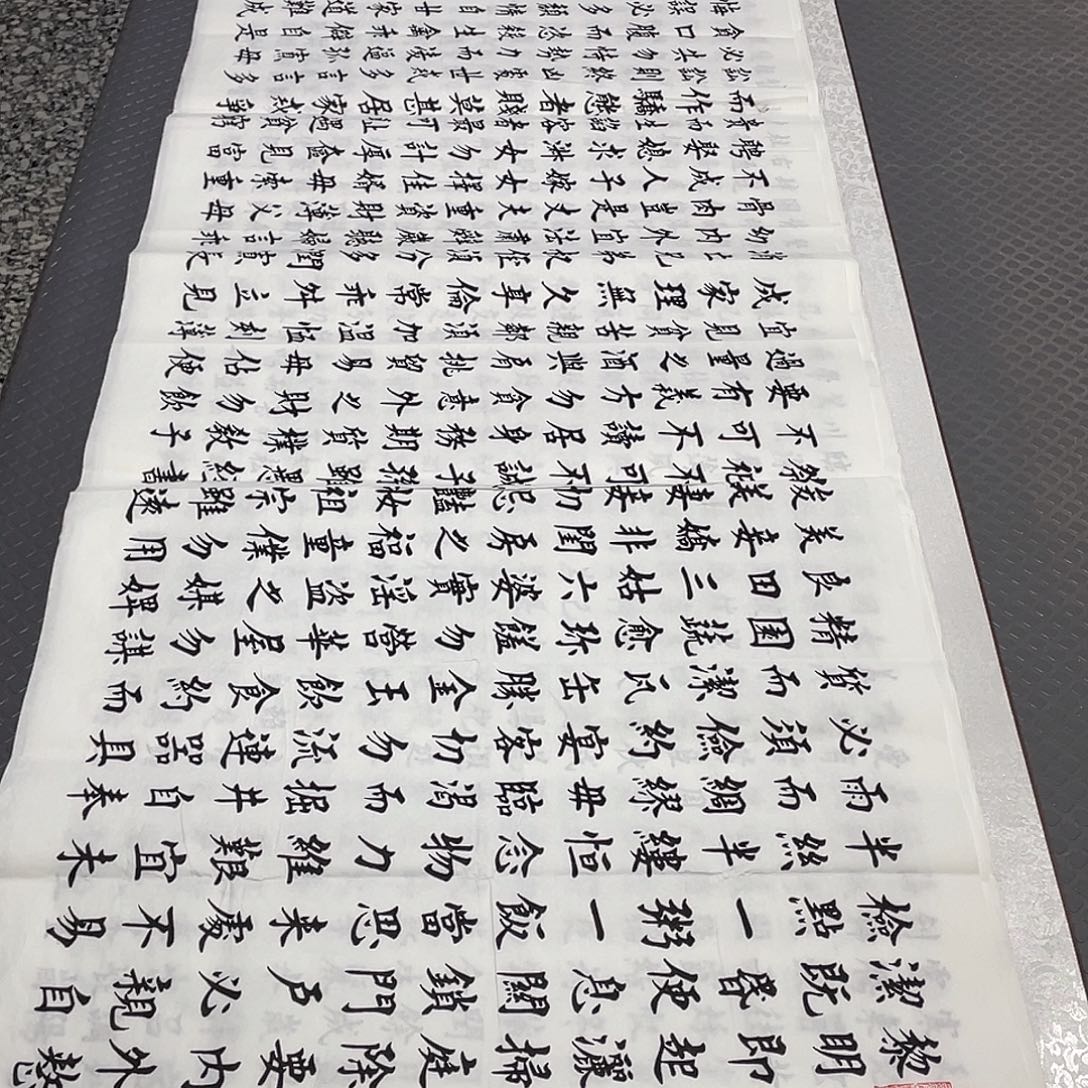 黎明即起灑掃庭除要內外整
潔既昏便息關鎖門戶必親自
檢點一粥一飯當思來處不易
半絲半縷恒念物力維艱宜未
雨而綢繆毋臨渴而掘井自奉
必須儉約宴客切勿流連器具
質而潔瓦缶勝金玉飲食約而
精園蔬愈珍饈勿營華屋勿謀
良田三姑六婆實淫盜之媒婢
美妾嬌非閨房之福童僕勿用
俊美妻妾切忌艷妝祖宗雖遠
祭祀不可不誠子孫雖愚經書
不可不讀居身務期質樸教子
要有義方勿貪意外之財勿飲
過量之酒與肩挑貿易毋佔便
宜見貧苦親鄰須加溫恤刻薄
成家理無久享倫常乖舛立見
消亡兄弟叔侄須分多潤寡長
幼內外宜法肅辭嚴聽婦言乖
骨肉豈是丈夫重資財薄父母
不成人子嫁女擇佳婿毋索重
聘娶媳求淑女勿計厚奩見富
貴而生諂容者最可恥遇貧窮
而作驕態者賤莫甚居家戒爭
訟訟則終凶處世戒多言言多
必失勿恃勢力而凌逼孤寡毋
貪口腹而恣殺生禽乖僻自是
悔誤必多頹惰自甘家道難成